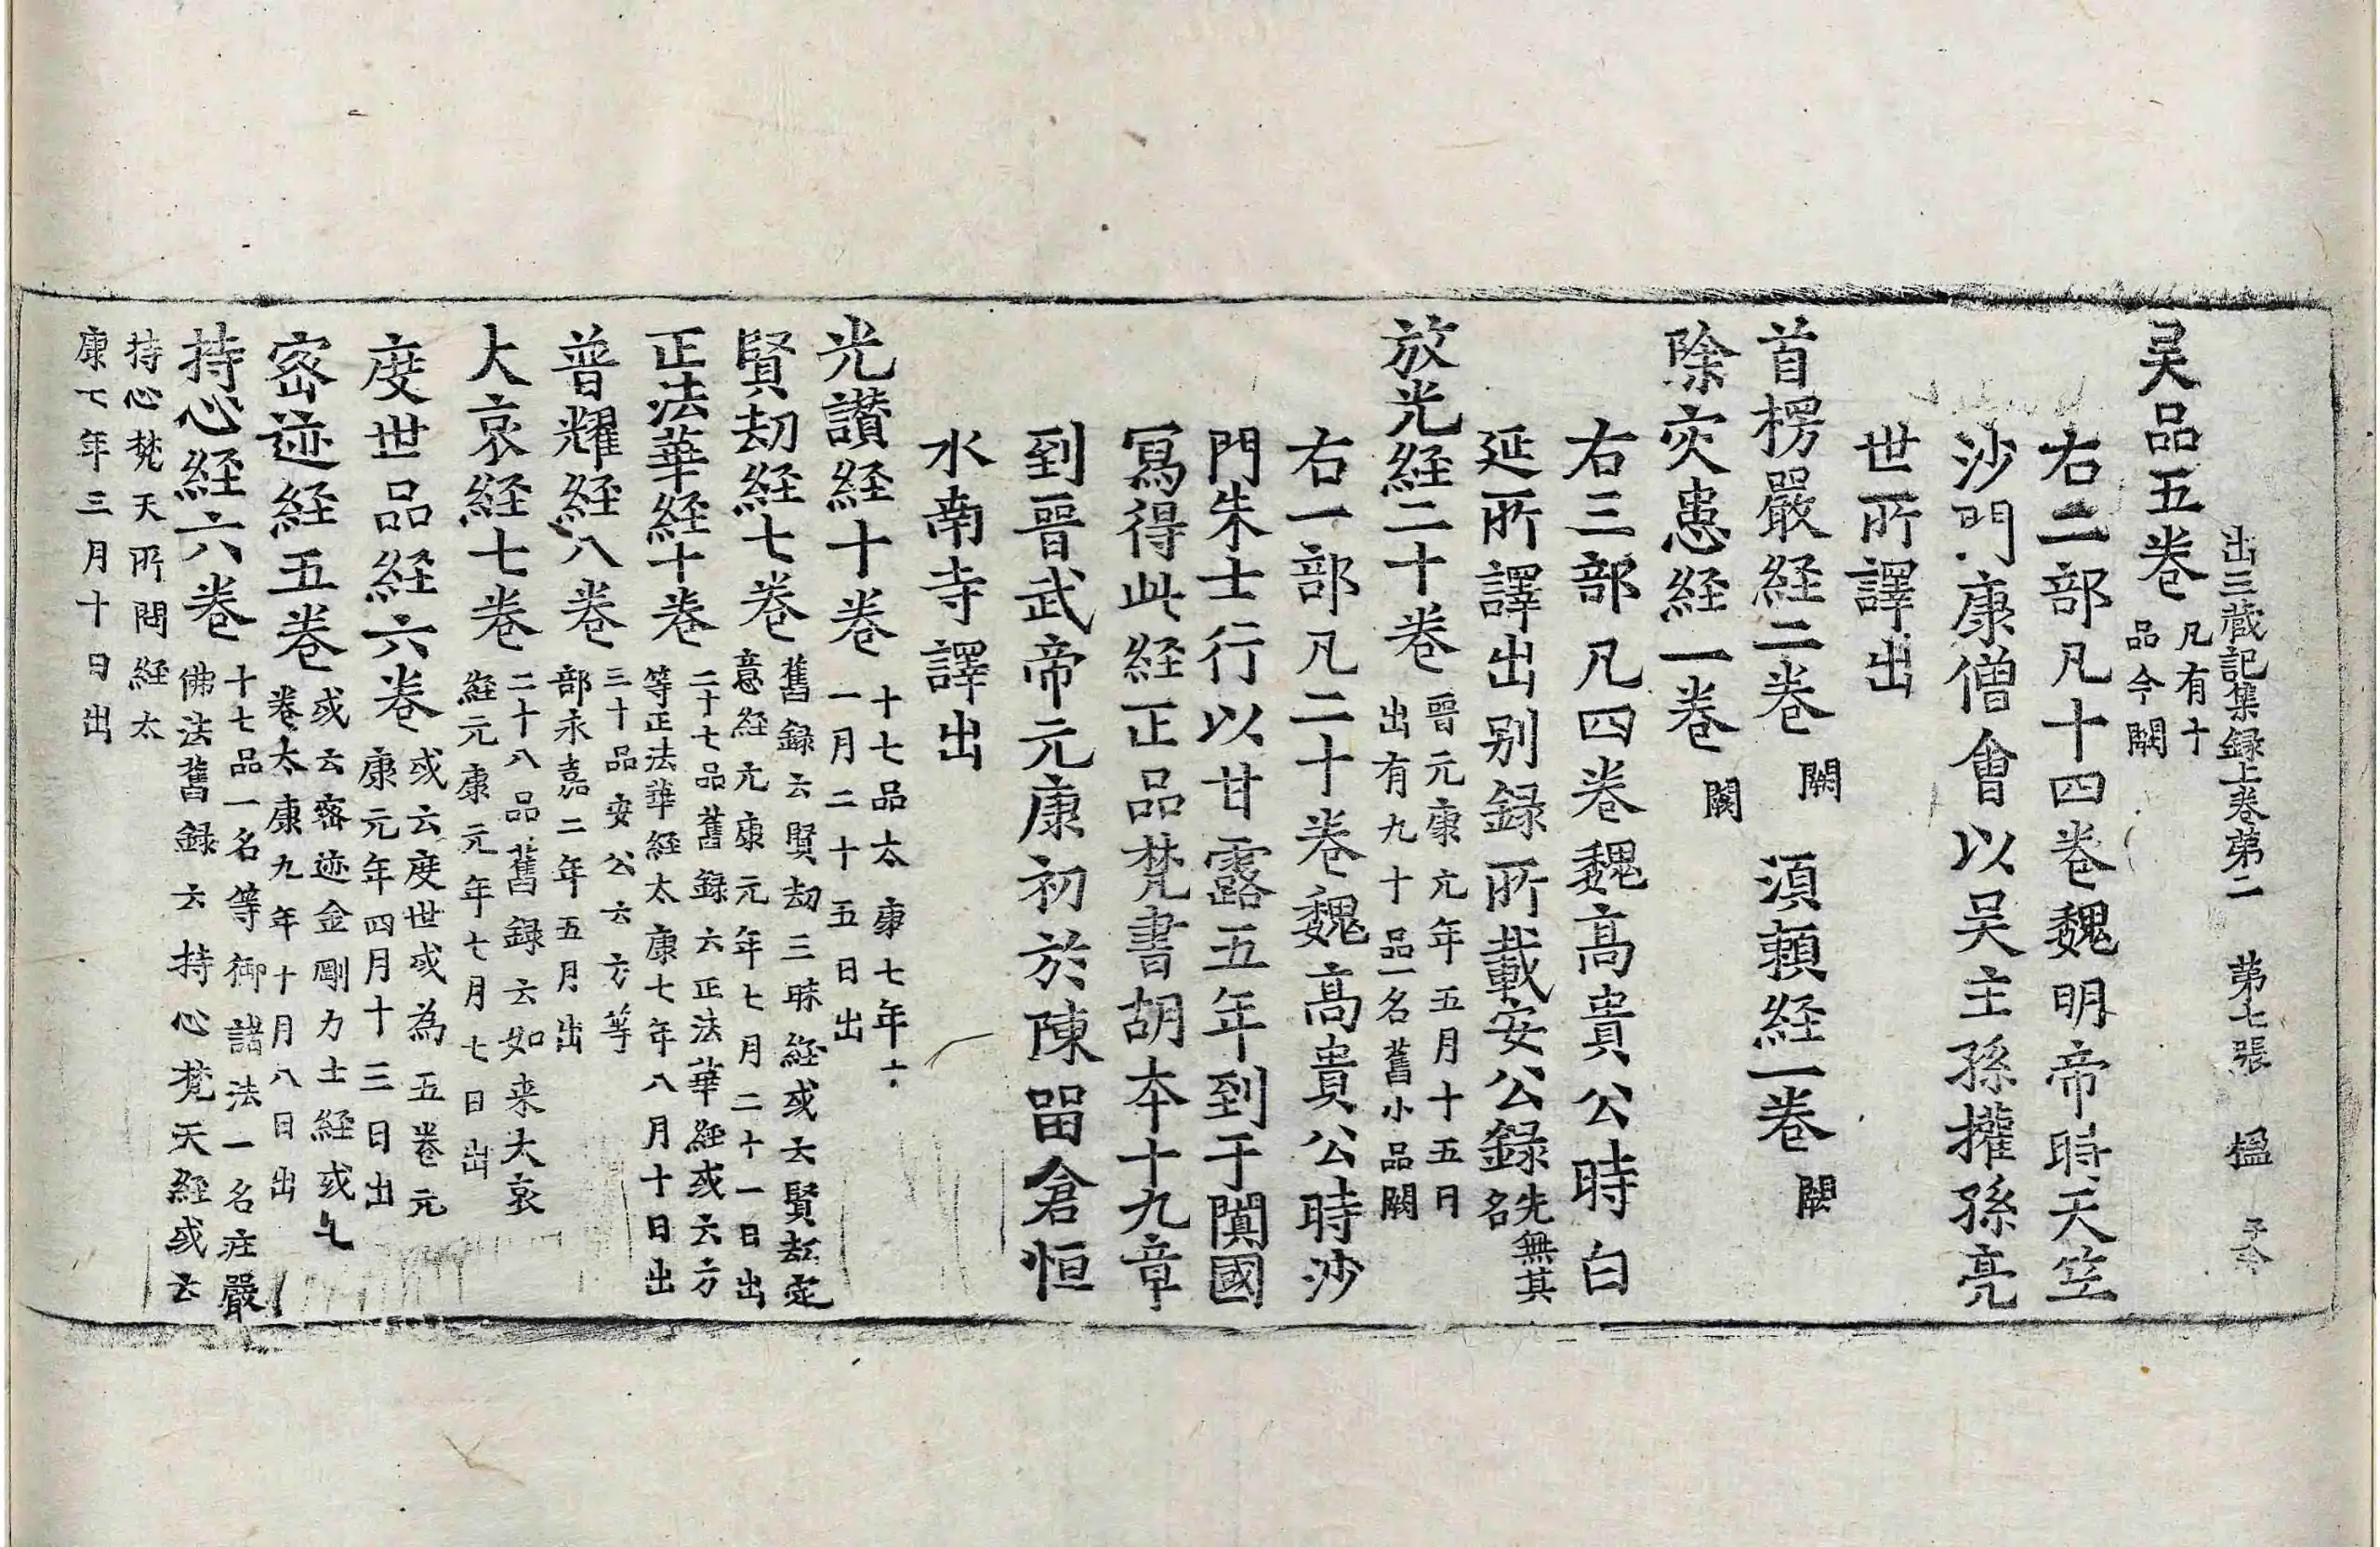 出三藏記集録上卷第二 第七張 楹
吴品五卷 凡有十品今闕
右二部凡十四卷魏明帝時天竺
沙門康僧會以吴主孫權孫亮
世所譯出
首楞嚴経二卷 闕 須賴経一卷 闕
除灾患経一卷 闕
右三部凡四卷魏髙貴公時白
延所譯出别録所載安公録先無其名
放光経二十卷 晉元康元年五月十五日出有九十品一名舊小品闕
右一部凡二十卷魏髙貴公時沙
門朱士行以甘露五年到于闐國
冩得此経正品梵書胡夲十九章
到晉武帝元康初於陳留倉恒
水南寺譯出
光讃経十卷 十七品太康七年十一月二十五日出
賢劫経七卷 舊録云賢劫三昧経或云賢劫定意経元康元年七月二十一日出
正法華経十卷 二十七品舊録云正法華経或云方等正法華経太康七年八月十日出
普耀経八卷 三十品安公云方等部永嘉二年五月出
大哀経七卷 二十八品舊録云如来大哀経元康元年七月七日出
度世品経六卷 或云度世或為五卷元康元年四月十三日出
密迹経五卷 或云密迹金剛力士経或七卷太康九年十月八日出
持心経六卷 十七品一名等御諸法一名莊嚴佛法舊録云持心梵天経或云
持心梵天所問経太
康七年三月十日出